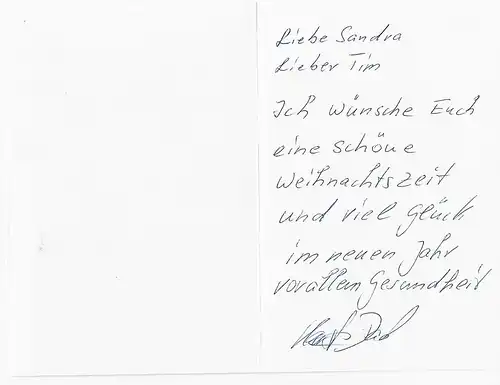 Liebe Sandra
Lieber Tim
Ich wünsche Euch
eine schöne
Weihnachtszeit
und viel Glück
im neuen Jahr
vorallem Gesundheit